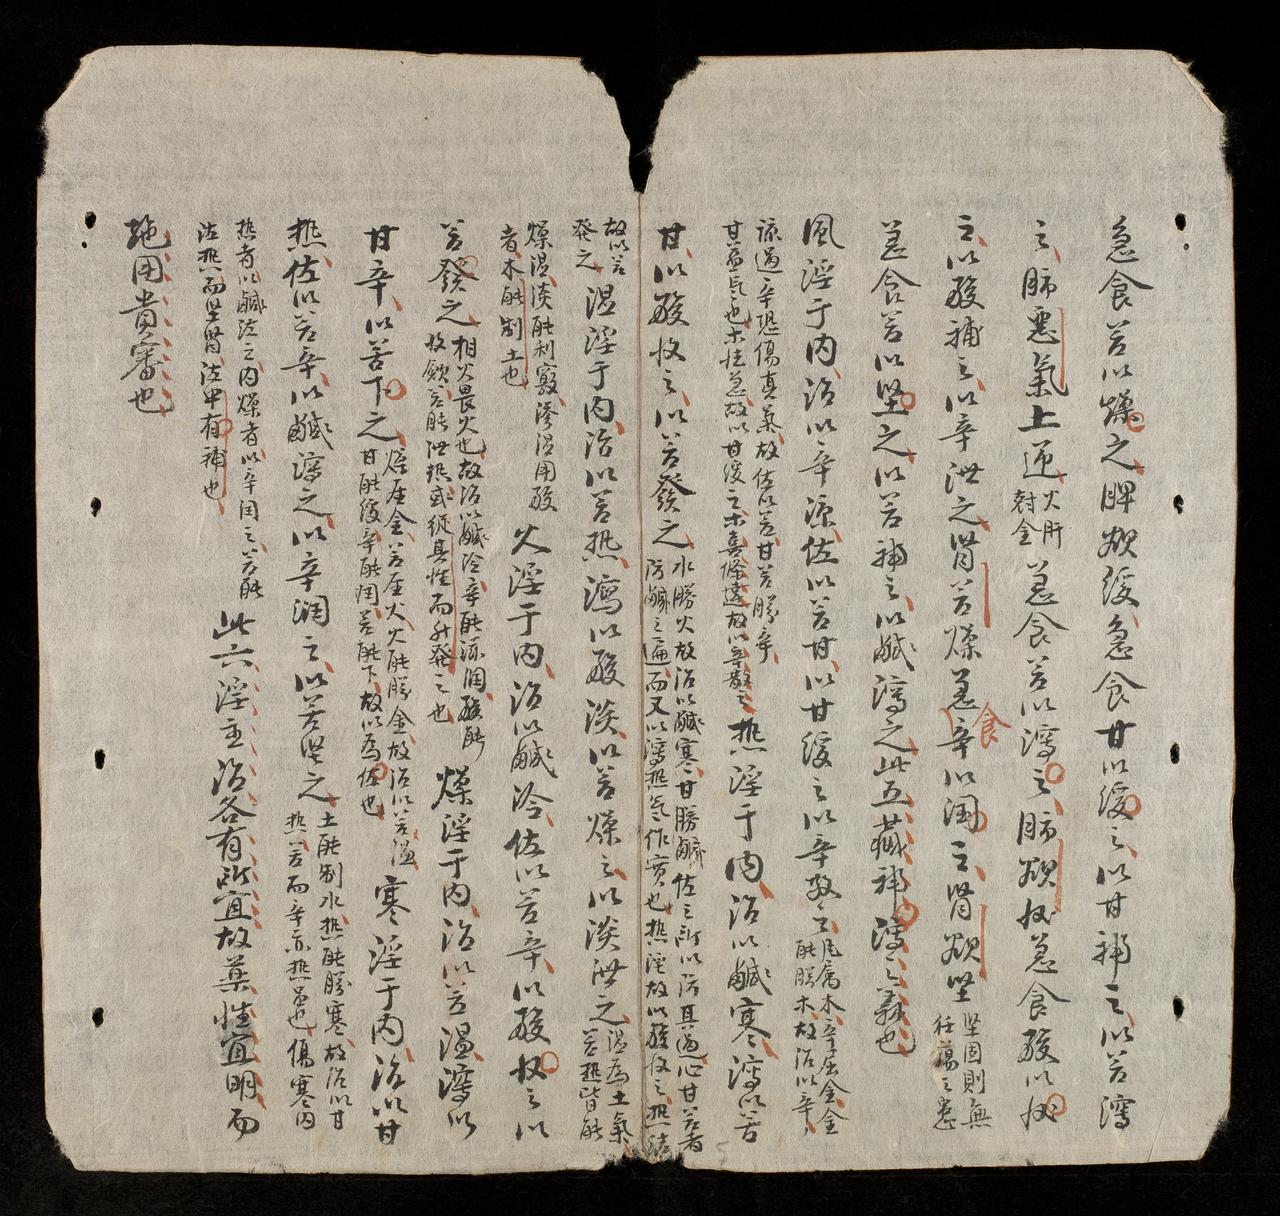 急食苦以燥之脾欲緩急食甘以緩之以甘補之以苦瀉
之肺惡氣上逆火肝尅金急食苦以瀉之肺欲收急食酸以收
之以酸補之以辛洩之腎苦燥急食辛以潤之腎欲坚坚固則無狂蕩之患
急食苦以坚之以苦補之以鹹瀉之此五藏補瀉之義也
風淫于内治以辛凉佐以苦甘以甘緩之以辛散之風属木辛屈金金能勝木故治以辛
凉過辛恐傷真氣故佐以苦甘苦勝辛
甘益氣也木性急故以甘緩之木喜條達故以辛散之熱淫于内治以鹹寒瀉以苦
甘以酸收之以苦發之水勝火故治以鹹寒甘勝鹹佐之所以防其過心甘苦者
防鹹之過而又以瀉热氣作實也热淫故以酸收之热结
故以苦發之湿淫于内治以苦热瀉以酸淡以苦燥之以淡洩之湿為土氣苦热皆能
燥湿淡能利竅滲湿用酸者木能制土也火淫于内治以鹹冷佐以苦辛以酸收之以
苦發之相火畏火也故治以鹹冷辛能凉潤酸能收歛苦能洩热或從其性而升發之也燥淫于内治以苦温瀉以
甘辛以苦下之燥屈金苦屈火火能勝金故治以苦温甘能緩辛能潤苦能下故以為佐也寒淫于内治以甘
热佐以苦辛以鹹瀉之以辛潤之以苦坚之土能制水热能勝寒故治以甘热苦而辛亦热品也傷寒内
热者以鹹治之内燥者以辛润之苦能洁热而坚腎洁中有補也此六淫主治各有所宜故藥性宜明而
施用貴審也